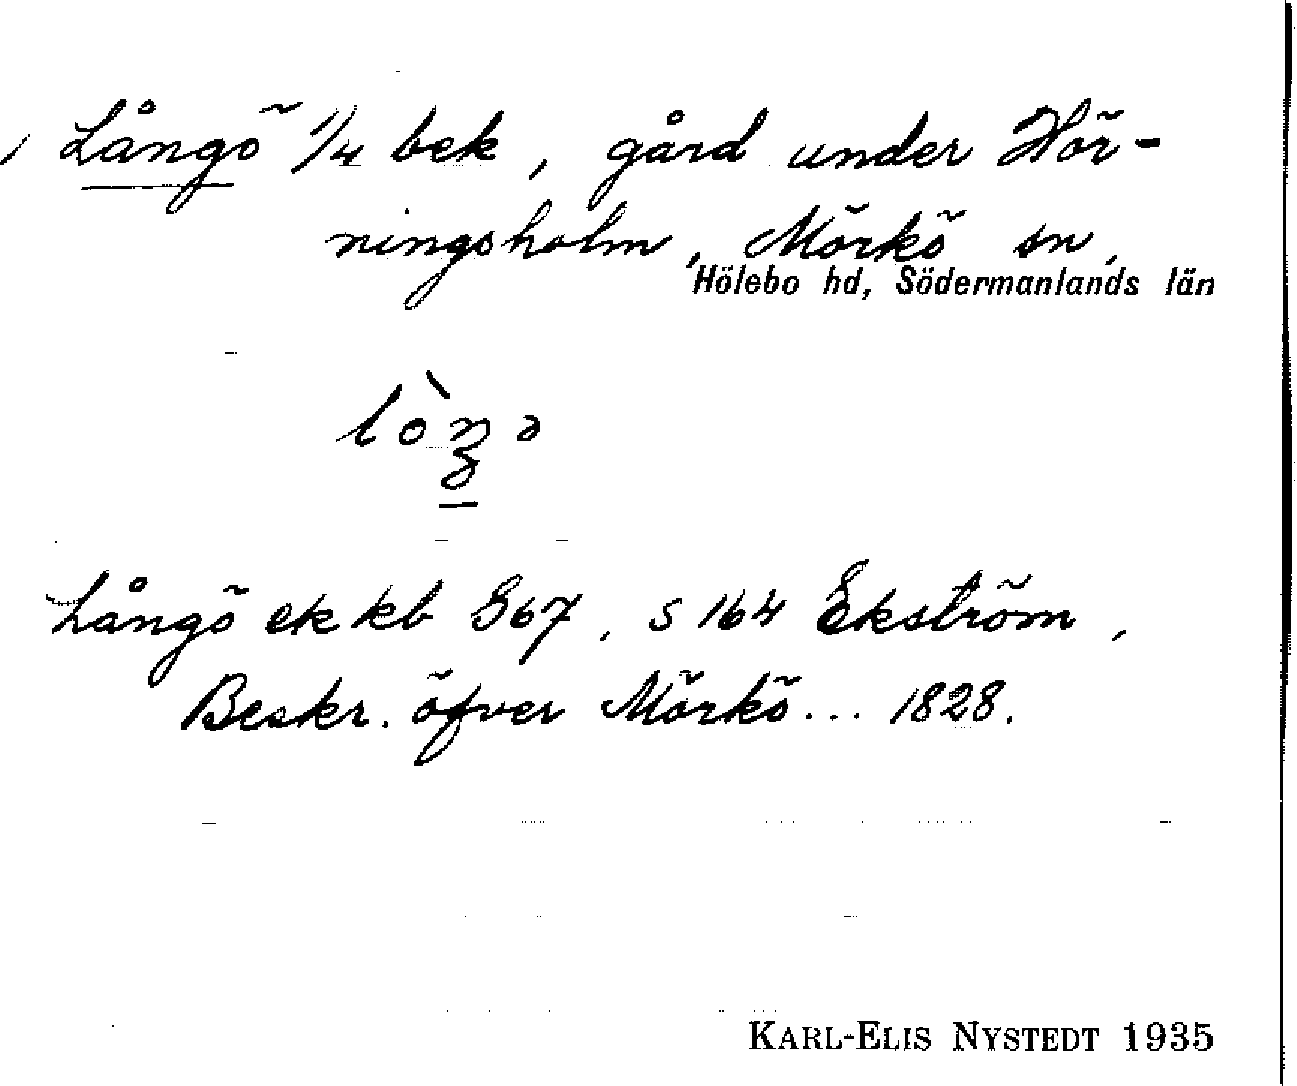 Långö 1/4 bek, gård under Hör-
ningsholm, Mörkö sn,
Hölebo hd, Södermanlands län
Långö ek kb G67, s 164 Ekström,
Beskr. öfver Mörkö... 1828.
KARL-ELIS NYSTEDT 1935